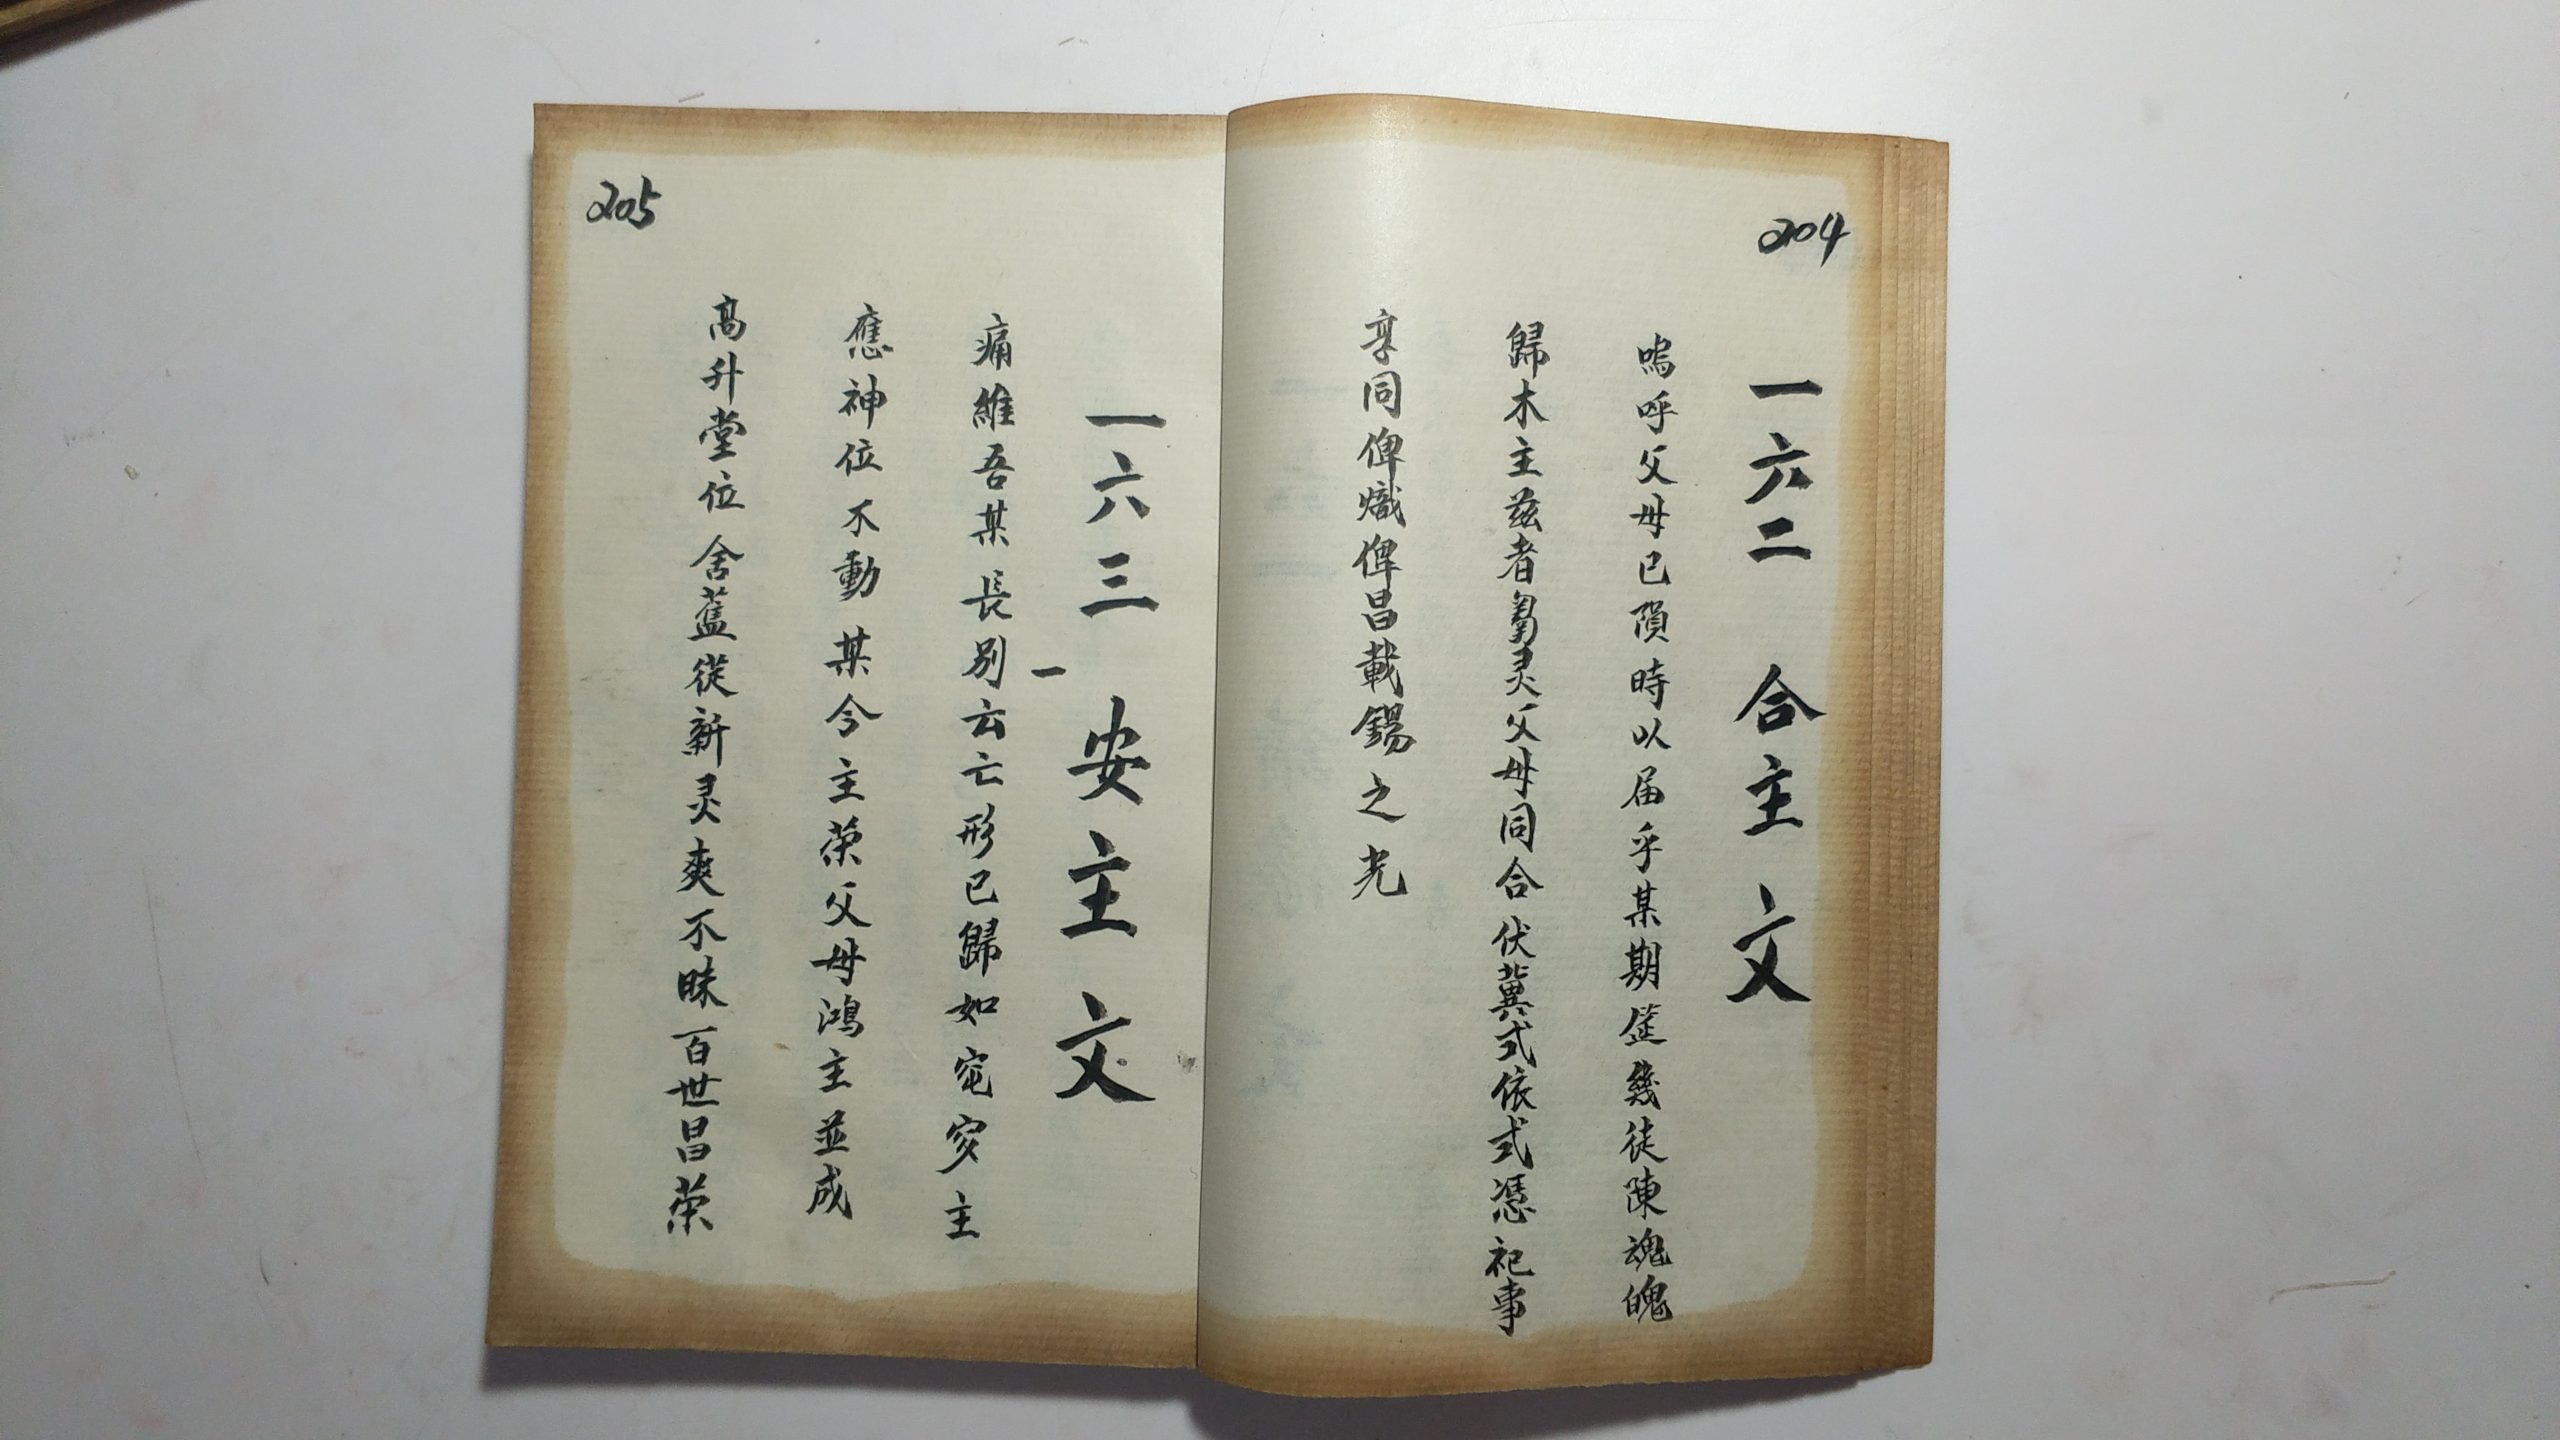 204
一六二 合主文
嗚呼父母已隕時以届乎某期筵幾徒陳魂魄
歸木主兹者芻灵父母同合伏冀式依式憑祀事
享同俾熾俾昌載錫之光
205
一六三 安主文
痛維吾某長別云亡形已歸如窀穸主
應神位不動某今主荣父母鴻主並成
高升堂位舍蓝從新灵爽不昧百世昌荣